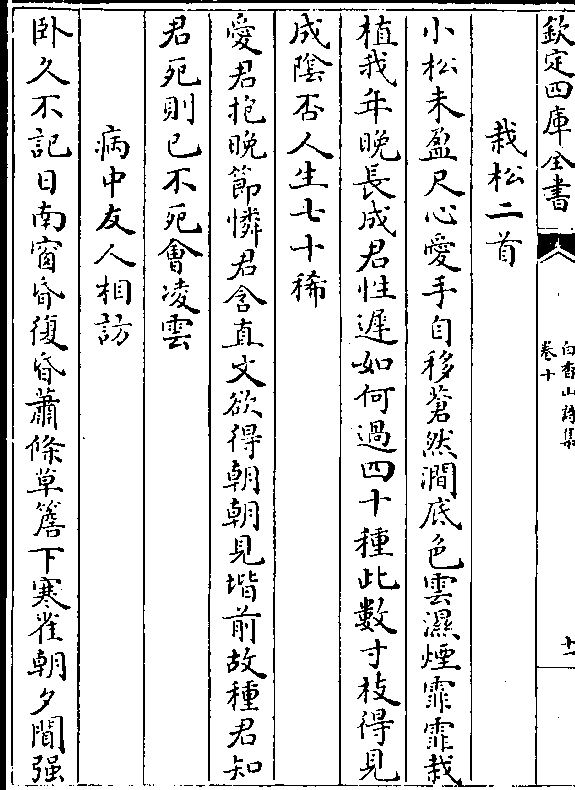 欽定四庫全書
白香山詩集
卷十
十一
栽松二首
小松未盈尺心愛手自移蒼然澗底色雲濕煙霏霏栽
植我年晚長成君性遲如何過四十種此數寸枝得見
成陰否人生七十稀
愛君抱晚節憐君含直文欲得朝朝見堦前故種君知
君死則已不死會凌雲
病中友人相訪
卧久不記日南窗昏復昏蕭條草簷下寒雀朝夕聞强